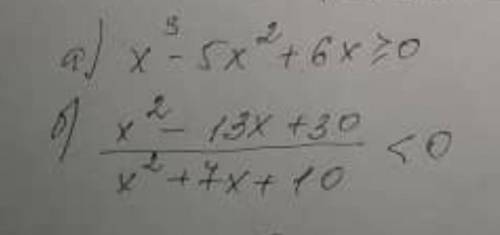 а) x³ - 5x² + 6x ≥ 0
б) (x² - 13x + 30)/(x² + 7x + 10) < 0